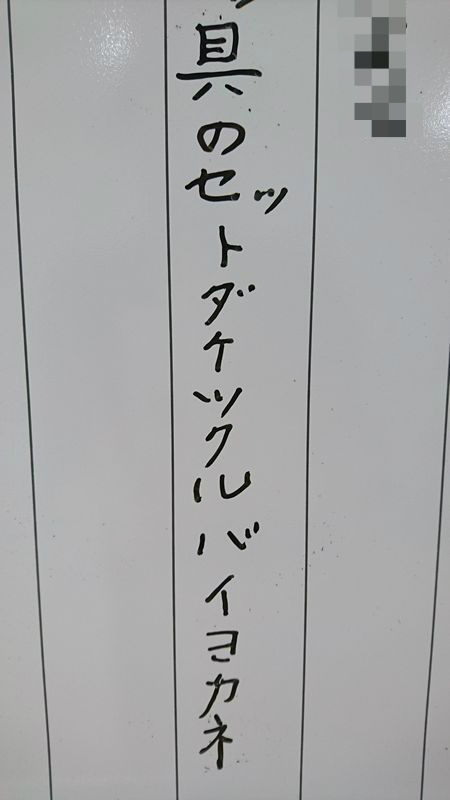 具のセットダケツクルバイヨカネ